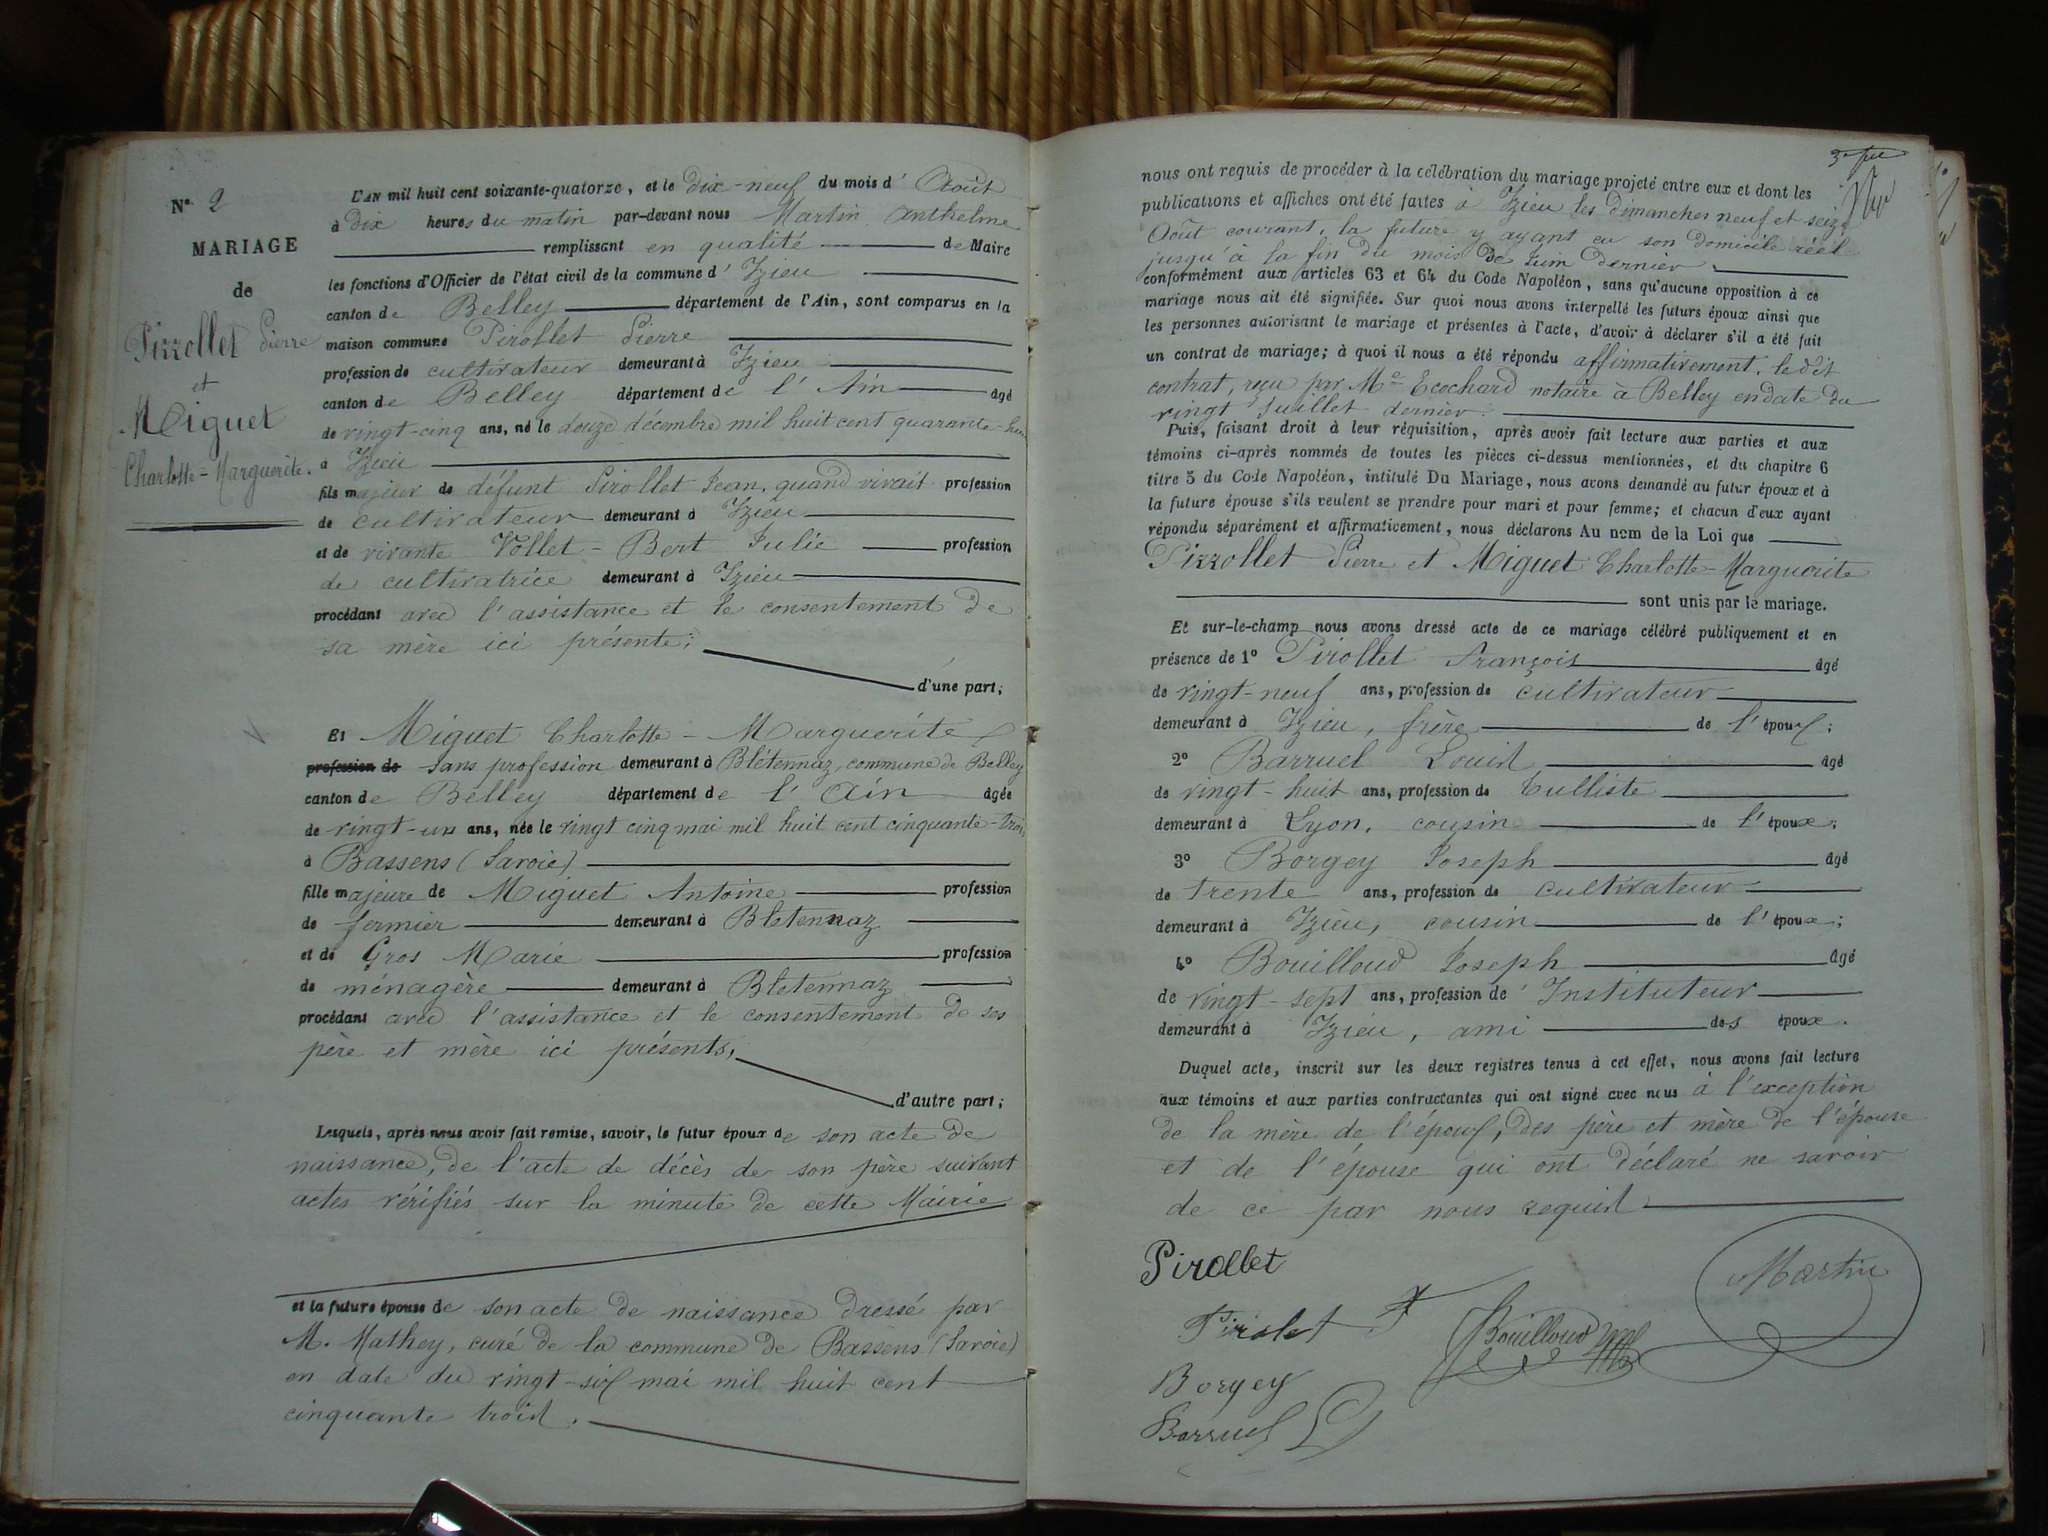 N° 2
MARIAGE
de
Pirrollet Pierre
et
Miguet
Charlotte-Marguerite.
L'AN mil huit cent soixante-quatorze, et le dix-neuf du mois d'Août
à dix heures du matin par-devant nous Martin Anthelme
remplissant en qualité de Maire
les fonctions d'Officier de l'état civil de la commune d'Izieu
canton de Belley département de l'Ain, sont comparus en la
maison commune Pirollet Pierre
profession de cultivateur demeurant à Izieu
canton de Belley département de l'Ain âgé
de vingt-cinq ans, né le douze décembre mil huit cent quarante-huit
à Izieu
fils majeur de défunt Pirollet Jean, quand vivait profession
de cultivateur demeurant à Izieu
et de vivante Vollet-Bert Julie profession
de cultivatrice demeurant à Izieu
procédant avec l'assistance et le consentement de
sa mère ici présente;
d'une part;
Et Miguet Charlotte-Marguerite
profession de sans profession demeurant à Blétennaz, commune de Belley
canton de Belley département de l'Ain âgée
de vingt-un ans, née le vingt cinq mai mil huit cent cinquante-trois
à Bassens (Savoie)
fille majeure de Miguet Antoine profession
de fermier demeurant à Blétennaz
et de Gros Marie profession
de ménagère demeurant à Blétennaz
procédant avec l'assistance et le consentement de ses
père et mère ici présents,
d'autre part;
Lesquels, après nous avoir fait remise, savoir, le futur époux de son acte de
naissance, de l'acte de décès de son père suivant
actes vérifiés sur la minute de cette Mairie
et la future épouse de son acte de naissance dressé par
M. Mathey, curé de la commune de Bassens (Savoie)
en date du vingt-six mai mil huit cent
cinquante trois.
nous ont requis de procéder à la célébration du mariage projeté entre eux et dont les
publications et affiches ont été faites à Izieu les dimanches neuf et seize
Août courant, la future y ayant eu son domicile réel
jusqu'à la fin du mois de Juin dernier
conformément aux articles 63 et 64 du Code Napoléon, sans qu'aucune opposition à ce
mariage nous ait été signifiée. Sur quoi nous avons interpellé les futurs époux ainsi que
les personnes autorisant le mariage et présentes à l'acte, d'avoir à déclarer s'il a été fait
un contrat de mariage; à quoi il nous a été répondu affirmativement, ledit
contrat, reçu par Me Ecochard notaire à Belley en date du
vingt Juillet dernier.
Puis, faisant droit à leur réquisition, après avoir fait lecture aux parties et aux
témoins ci-après nommés de toutes les pièces ci-dessus mentionnées, et du chapitre 6
titre 5 du Code Napoléon, intitulé Du Mariage, nous avons demandé au futur époux et à
la future épouse s'ils veulent se prendre pour mari et pour femme; et chacun d'eux ayant
répondu séparément et affirmativement, nous déclarons Au nom de la Loi que
Pirrollet Pierre et Miguet Charlotte-Marguerite
sont unis par le mariage.
Et sur-le-champ nous avons dressé acte de ce mariage célébré publiquement et en
présence de 1° Pirollet François âgé
de vingt-neuf ans, profession de cultivateur
demeurant à Izieu, frère de l'époux;
2° Barruel Louis âgé
de vingt-huit ans, profession de Tulliste
demeurant à Lyon, cousin de l'époux;
3° Borgey Joseph âgé
de trente ans, profession de cultivateur
demeurant à Izieu, cousin de l'époux;
4° Bouilloud Joseph âgé
de vingt-sept ans, profession de Instituteur
demeurant à Izieu, ami des époux.
Duquel acte, inscrit sur les deux registres tenus à cet effet, nous avons fait lecture
aux témoins et aux parties contractantes qui ont signé avec nous à l'exception
de la mère de l'époux, des père et mère de l'épouse
et de l'épouse qui ont déclaré ne savoir
de ce par nous requis
Pirollet
Martin
Pirolet F
Bouilloud
Borgey
Barruel L